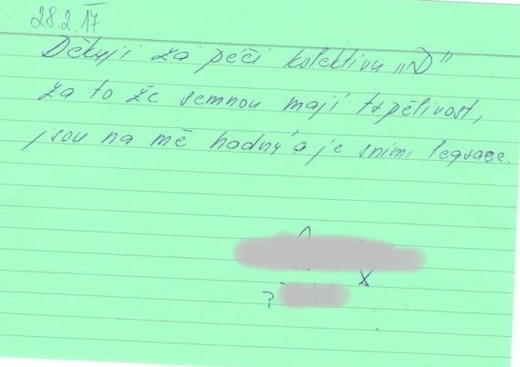 28.2.17
Děkuji za péči kolektivu „D"
za to že semnou mají trpělivost,
jsou na mě hodný a je snimi legrace.